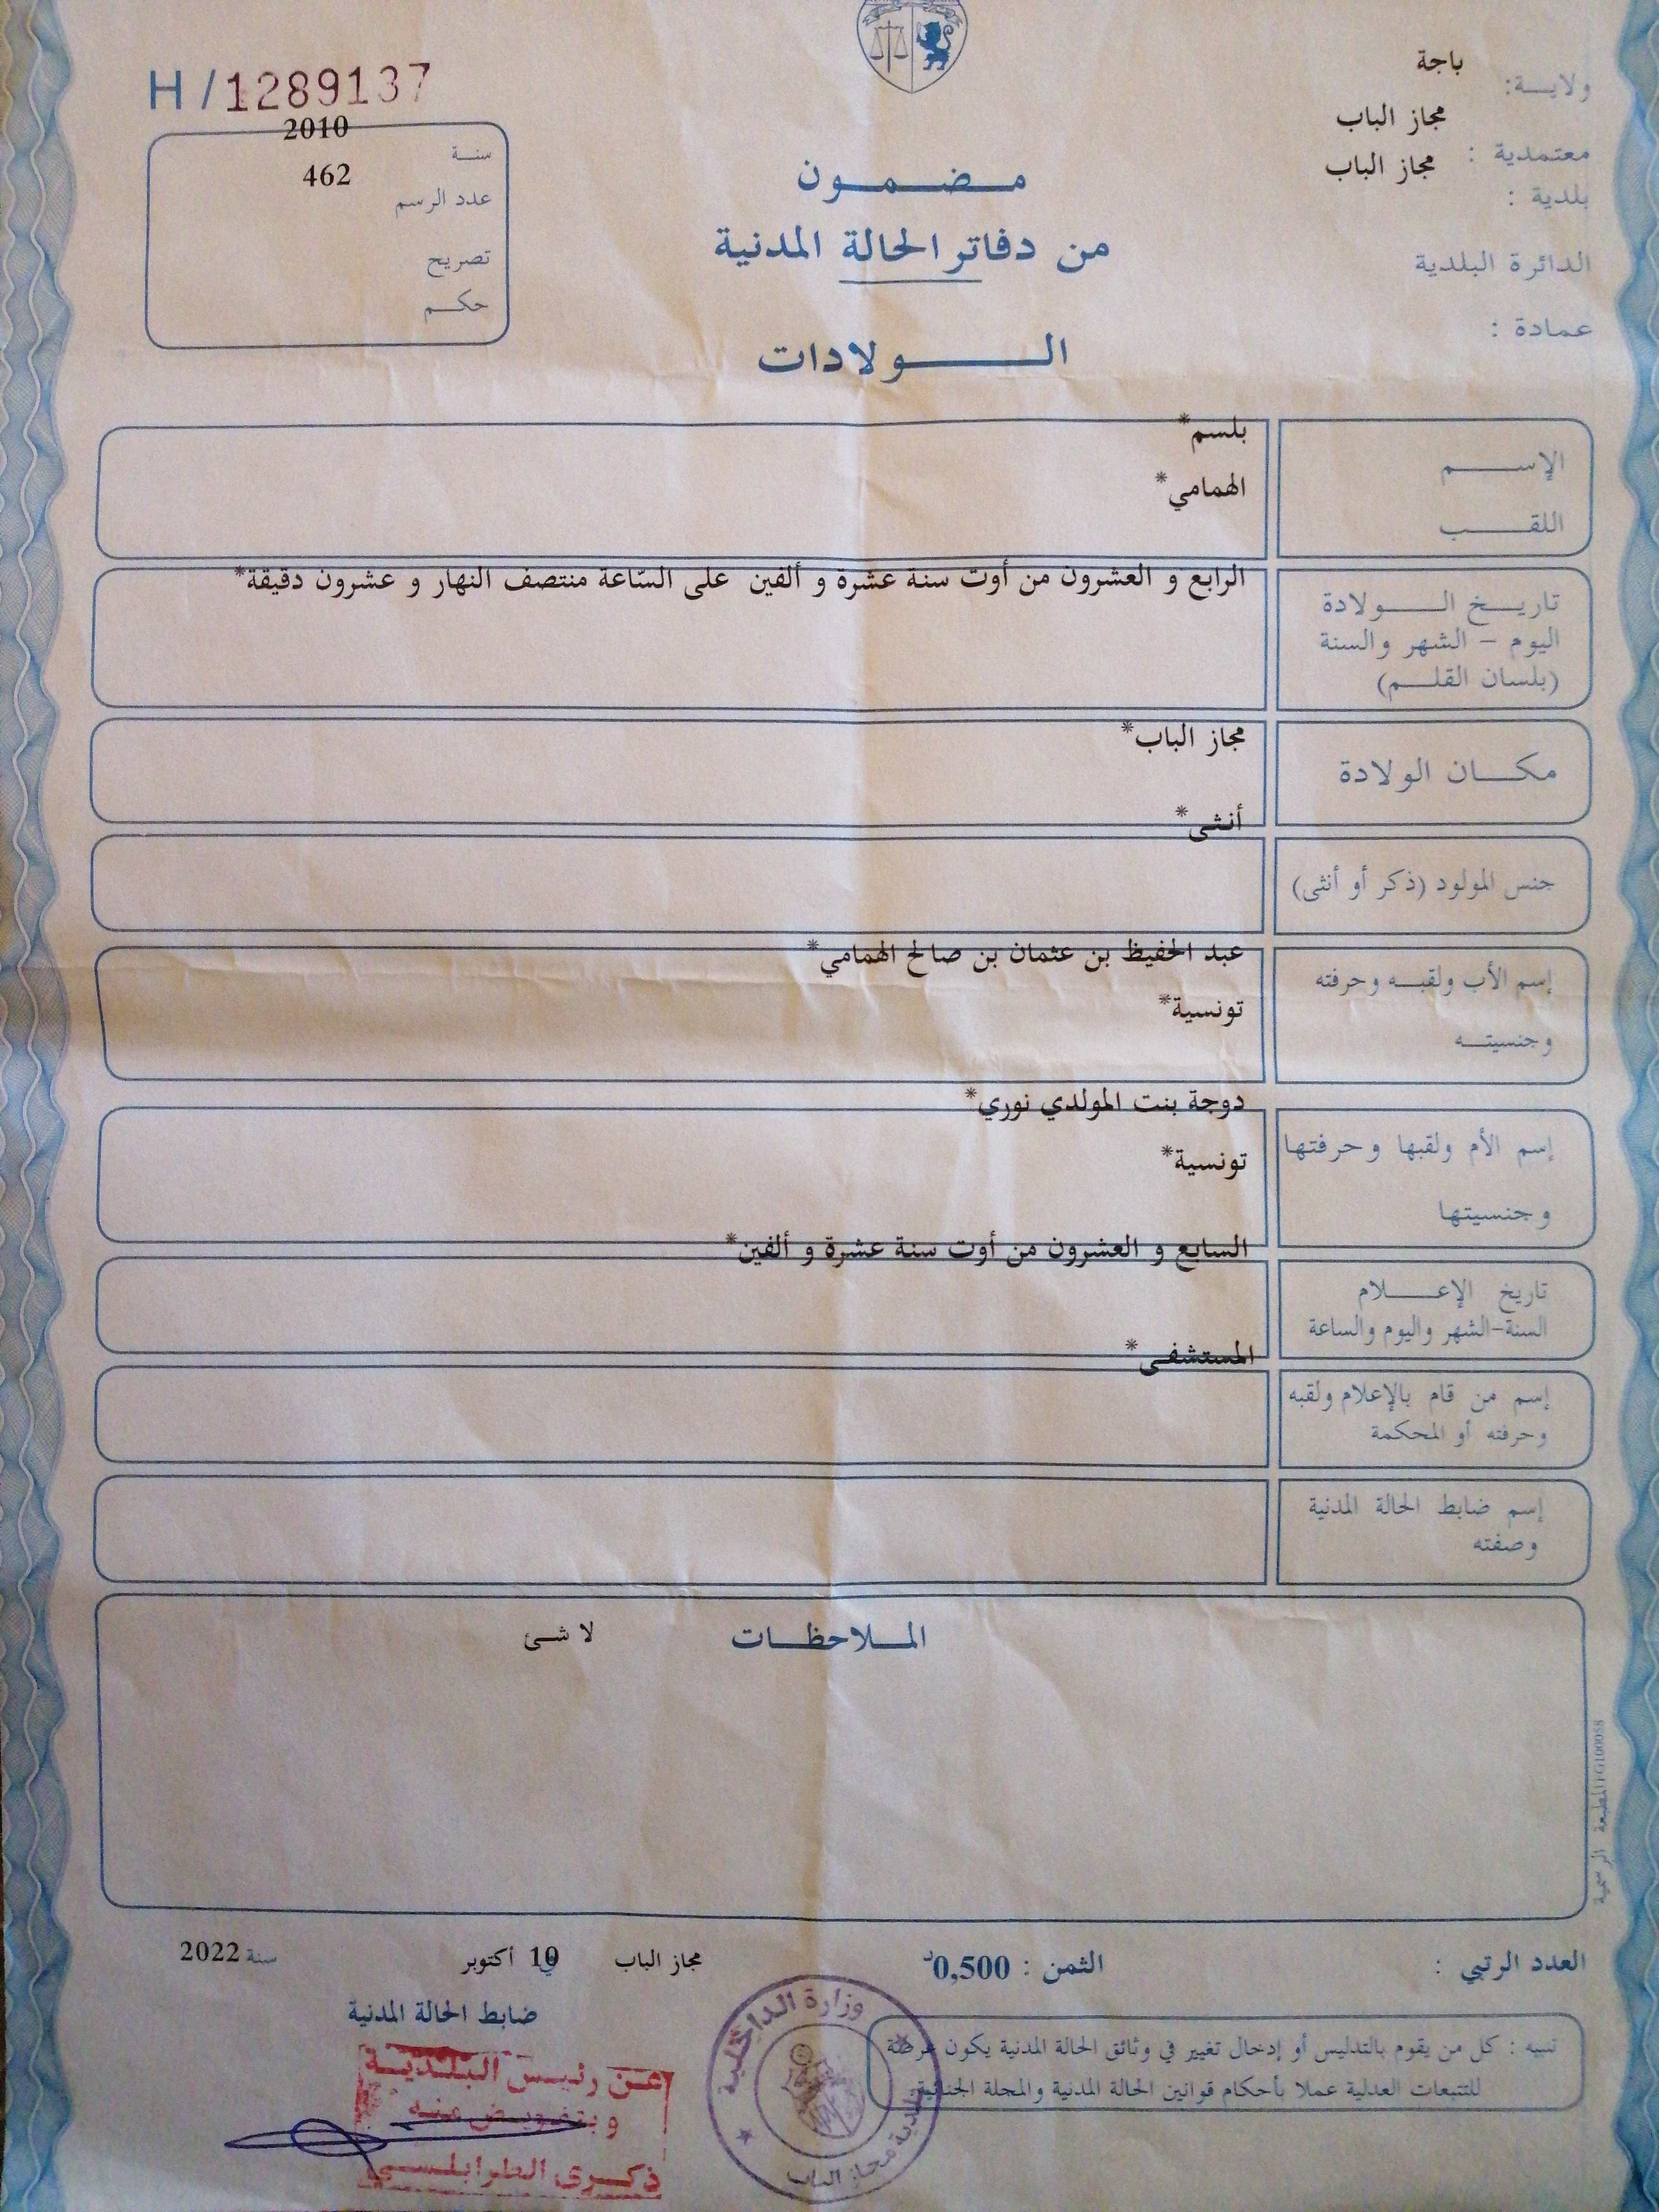 ولايـــة: باجة
معتمدية : مجاز الباب
بلدية : مجاز الباب
الدائرة البلدية
عمادة :
H / 1289137
سنـة 2010
عدد الرسم 462
تصريح
حكـــم
مـــضـــمـــون
من دفاتر الحالة المدنية
الـــــــولادات
الإســـــم بلسم*
اللقـــــب الهمامي*
تاريـــخ الـــــولادة الرابع و العشرون من أوت سنة عشرة و ألفين على السّاعة منتصف النهار و عشرون دقيقة*
اليوم – الشهر والسنة
(بلسان القلـــم)
مكـــان الولادة مجاز الباب*
جنس المولود (ذكر أو أنثى) أنثى*
إسم الأب ولقبـــه وحرفته عبد الحفيظ بن عثمان بن صالح الهمامي*
وجنسيتـــه تونسية*
إسم الأم ولقبها وحرفتها دوجة بنت المولدي نوري*
وجنسيتها تونسية*
تاريخ الإعـــــلام السابع و العشرون من أوت سنة عشرة و ألفين*
السنة-الشهر واليوم والساعة
إسم من قام بالإعلام ولقبه المستشفى*
وحرفته أو المحكمة
إسم ضابط الحالة المدنية
وصفته
الملاحظـــات لا شئ
المطبعة الرسمية
العدد الرتبي : الثمن : 0,500د مجاز الباب في 10 أكتوبر سنة 2022
ضابط الحالة المدنية
تنبيه : كل من يقوم بالتدليس أو إدخال تغيير في وثائق الحالة المدنية يكون عرضة
للتتبعات العدلية عملا بأحكام قوانين الحالة المدنية والمجلة الجنائية.
وزارة الداخلية
بلدية مجاز الباب
عن رئيس البلدية
وبتفويض منه
ذكرى الطرابلسي